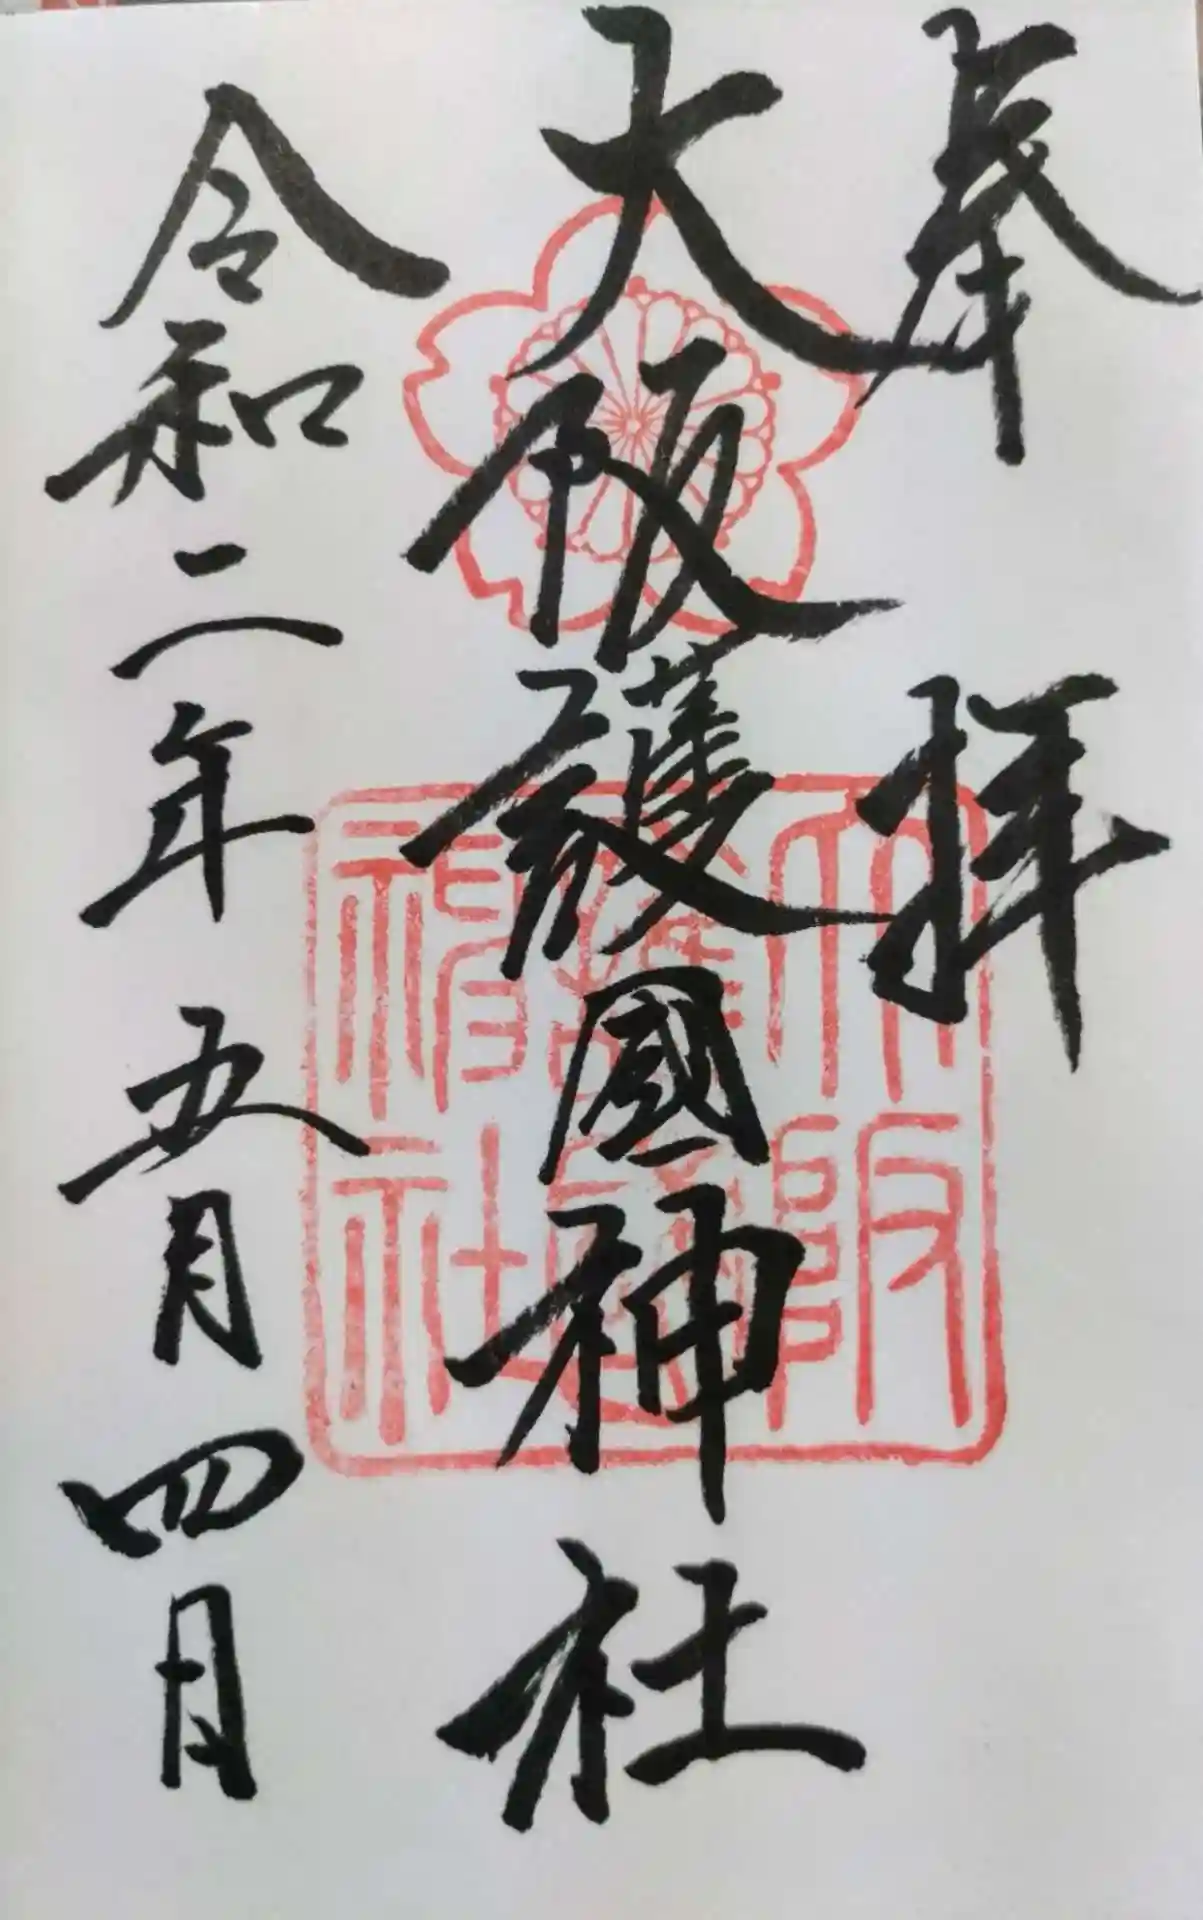 奉拝
大阪護國神社
令和二年五月四日
大阪
護國
神社